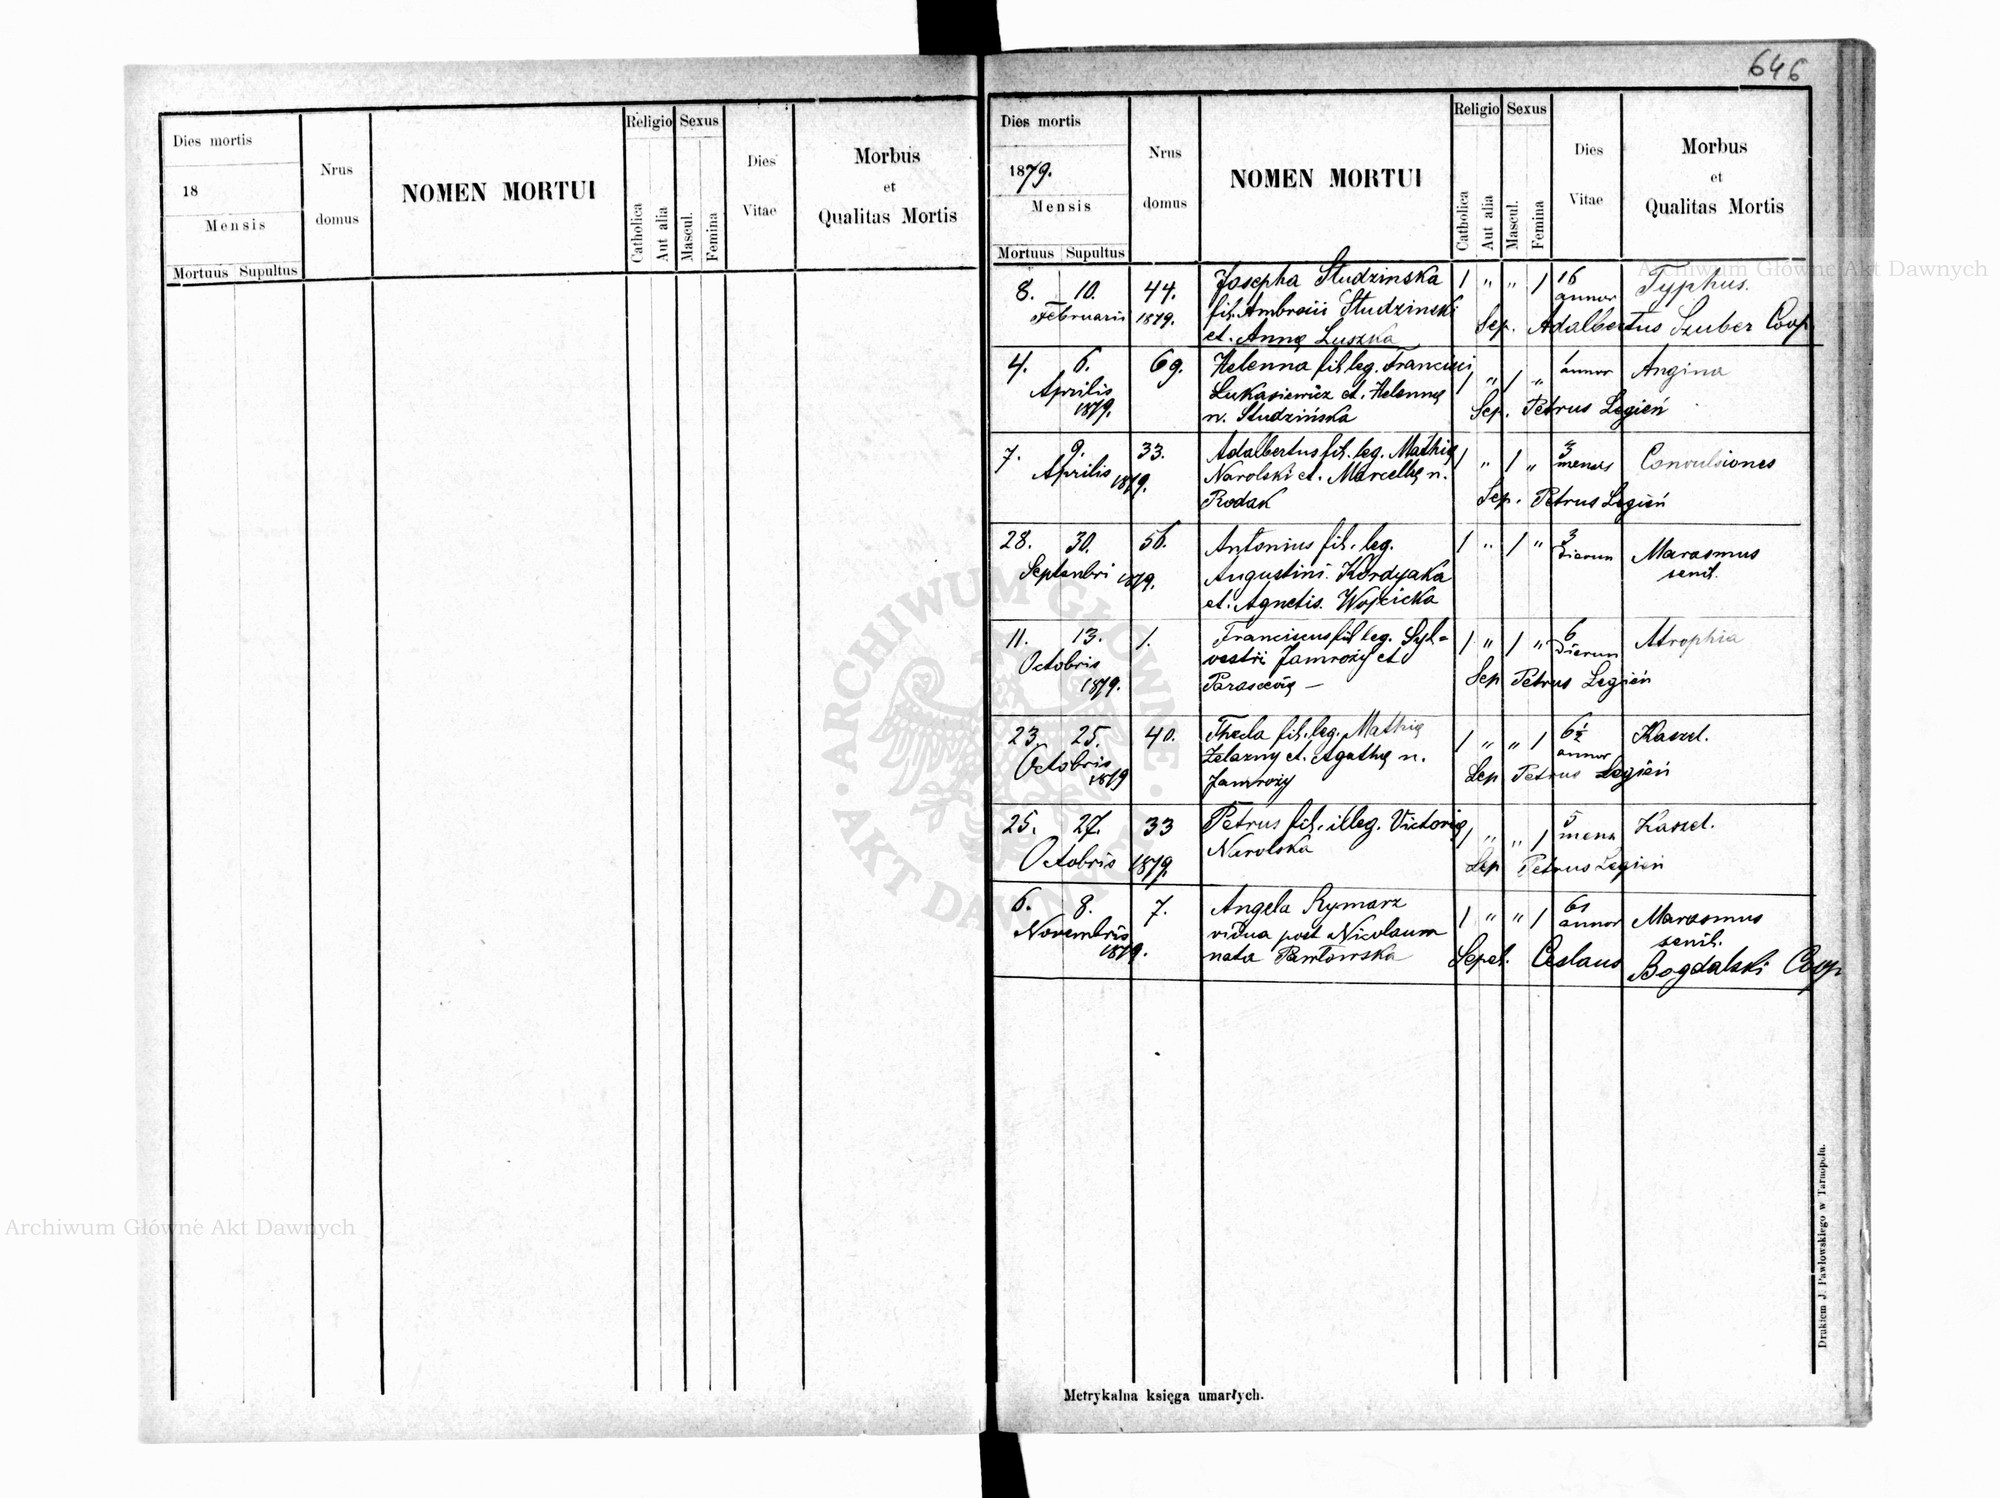 646
Dies mortis
18
Mensis
Mortuus Supultus
Nrus
domus
NOMEN MORTUI
Religio
Catholica
Aut alia
Sexus
Mascul.
Femina
Dies
Vitae
Morbus
et
Qualitas Mortis
Dies mortis
1879.
Mensis
Mortuus Supultus
Nrus
domus
NOMEN MORTUI
Religio
Catholica
Aut alia
Sexus
Mascul.
Femina
Dies
Vitae
Morbus
et
Qualitas Mortis
8. 10. 44. Josepha Studzinska 1 " " 1 16 Typhus.
Februarii 1879. fil. Ambrosii Studzinski annor
et. Annę Luszka Sep. Adalbertus Szuber Coop.
4. 6. 69. Helenna fil. leg. Francisci 1 " 1 " 1 annor Angina
Aprilis Lukasiewicz et. Helennę
1879. n. Studzińska Sep. Petrus Legień
7. 9. 33. Adalbertus fil. leg. Mathię 1 " 1 " 3 mensis Convulsiones
Aprilis 1879. Narolski et. Marcellę n.
Rodak Sep. Petrus Legień
28. 30. 56. Antonius fil. leg. 1 " 1 " 3 dierum Marasmus
Septembri 1879. Augustini. Kordyaka senil.
et. Agnetis. Wojcicka
11. 13. 1. Franciscus fil. leg. Syl= 1 " 1 " 6 dierum Atrophia
Octobris vestri Jamroży et
1879. Parascevię — Sep Petrus Legień
23. 25. 40. Thecla fil. leg. Mathię 1 " " 1 6½ annor Kaszel.
Octobris Żelazny et. Agathę n.
1879 Jamroży Sep Petrus Legień
25. 27. 33 Petrus fil. illeg. Victorię 1 " " 1 5 mens Kaszel.
Octobris 1879. Narolska Sep Petrus Legień
6. 8. 7. Angela Rymarz 1 " " 1 61 annor Marasmus
Novembris vidua post Nicolaum senil.
1879. nata Pawłowska Sepel. Ceslaus Bogdalski Coop
Metrykalna księga umarłych.
Drukiem J. Pawłowskiego w Tarnopolu.
Archiwum Główne Akt Dawnych
Archiwum Główne Akt Dawnych
ARCHIWUM GŁÓWNE
AKT DAWNYCH